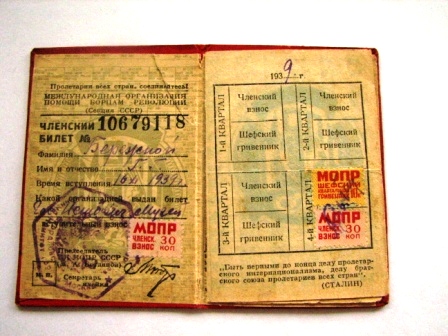 Пролетарии всех стран, соединяйтесь!
МЕЖДУНАРОДНАЯ ОРГАНИЗАЦИЯ
ПОМОЩИ БОРЦАМ РЕВОЛЮЦИИ
(Секция СССР)
ЧЛЕНСКИЙ 10679118
БИЛЕТ №
Фамилия
Имя и отчество
Время вступления 1939 г.
Какой организацией выдан билет
МОПР
ЧЛЕНСК. 30
ВЗНОС КОП
Председатель
ЦК МОПР СССР
М. П. Секретарь
ячейки
1939 г.
1-й КВАРТАЛ
Членский
взнос
Шефский
гривенник
2-й КВАРТАЛ
Членский
взнос
Шефский
гривенник
3-й КВАРТАЛ
Членский
взнос
Шефский
гривенник
4-й КВАРТАЛ
МОПР
ШЕФСКИЙ
МОПР
ЧЛЕНСК. 30
ВЗНОС КОП
„Быть первыми до конца делу пролетар-
ского интернационализма, делу брат-
ского союза пролетариев всех стран".
(СТАЛИН)